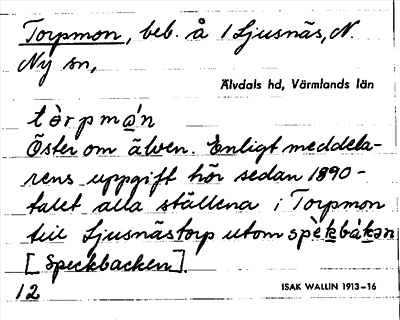 Torpmon, beb. å 1 Ljusnäs, N.
Ny sn,
Älvdals hd, Värmlands län
tòrpmán
Öster om älven. Enligt meddela-
rens uppgift hör sedan 1890-
talet alla ställena i Torpmon
till Ljusnästorp utom spèkbákən
[Speckbacken].
12
ISAK WALLIN 1913–16